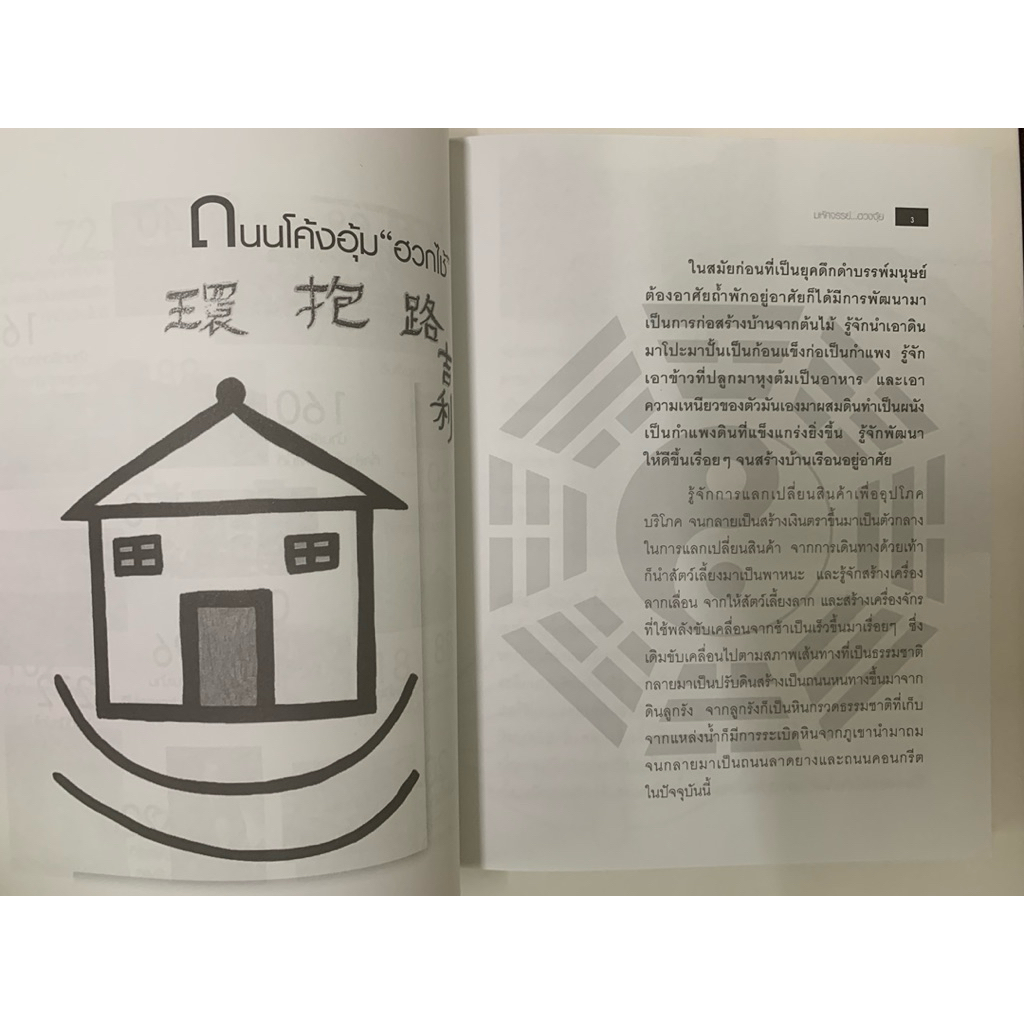 ถนนโค้งอุ้ม“ฮวกไช้”
環 抱 路
吉
利
มหัศจรรย์...ฮวงจุ้ย 3
ในสมัยก่อนที่เป็นยุคดึกดำบรรพ์มนุษย์
ต้องอาศัยถ้ำพักอยู่อาศัยก็ได้มีการพัฒนามา
เป็นการก่อสร้างบ้านจากต้นไม้ รู้จักนำเอาดิน
มาโปะมาปั้นเป็นก้อนแข็งก่อเป็นกำแพง รู้จัก
เอาข้าวที่ปลูกมาหุงต้มเป็นอาหาร และเอา
ความเหนียวของตัวมันเองมาผสมดินทำเป็นผนัง
เป็นกำแพงดินที่แข็งแกร่งยิ่งขึ้น รู้จักพัฒนา
ให้ดีขึ้นเรื่อยๆ จนสร้างบ้านเรือนอยู่อาศัย
รู้จักการแลกเปลี่ยนสินค้าเพื่ออุปโภค
บริโภค จนกลายเป็นสร้างเงินตราขึ้นมาเป็นตัวกลาง
ในการแลกเปลี่ยนสินค้า จากการเดินทางด้วยเท้า
ก็นำสัตว์เลี้ยงมาเป็นพาหนะ และรู้จักสร้างเครื่อง
ลากเลื่อน จากให้สัตว์เลี้ยงลาก และสร้างเครื่องจักร
ที่ใช้พลังขับเคลื่อนจากช้าเป็นเร็วขึ้นมาเรื่อยๆ ซึ่ง
เดิมขับเคลื่อนไปตามสภาพเส้นทางที่เป็นธรรมชาติ
กลายมาเป็นปรับดินสร้างเป็นถนนหนทางขึ้นมาจาก
ดินลูกรัง จากลูกรังก็เป็นหินกรวดธรรมชาติที่เก็บ
จากแหล่งน้ำก็มีการระเบิดหินจากภูเขานำมาถม
จนกลายมาเป็นถนนลาดยางและถนนคอนกรีต
ในปัจจุบันนี้